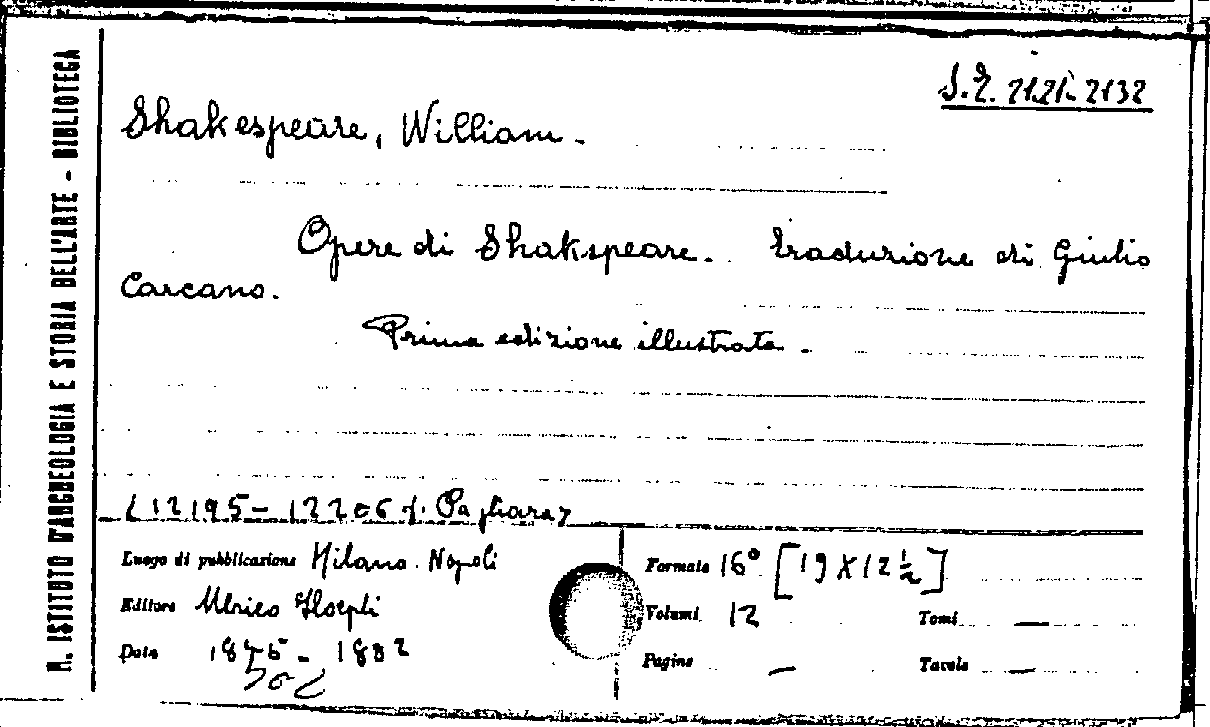 R. ISTITUTO D'ARCHEOLOGIA E STORIA DELL'ARTE - BIBLIOTECA
2121-2132
Shakespeare, William.
Opere di Shakspeare. Traduzione di Giulio
Carcano.
Prima edizione illustrata.
12195-12206 Pagliara
Luogo di pubblicazione Milano. Napoli
Editore Ulrico Hoepli
Data 1875-1882
Formato 16° [19 X 12 ½]
Volumi 12 Tomi —
Pagine — Tavole —